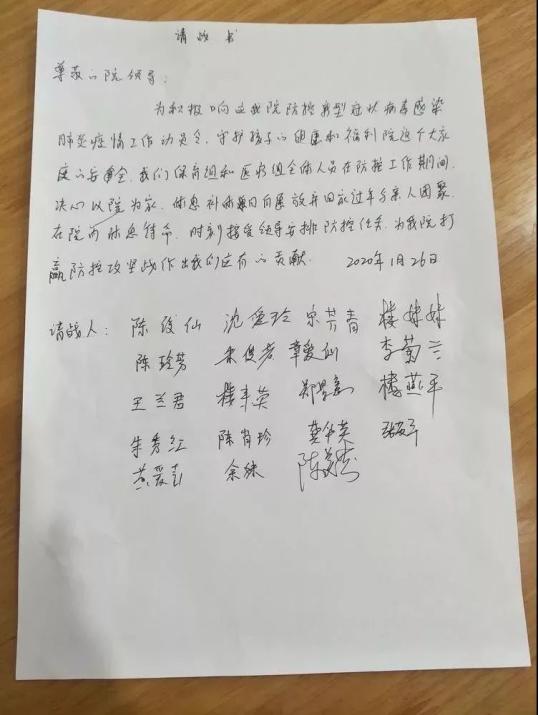 请战书
尊敬的院领导:
为积极响应我院防控新型冠状病毒感染
肺炎疫情工作动员令,守护孩子的健康和福利院这个大家
庭的安全,我们保育组和医务组全体人员在防控工作期间,
决心以院为家,休息补休期间自愿放弃回家过年与亲人团聚,
在院内休息待命,时刻接受领导安排防控任务,为我院打
赢防控攻坚战作出我们应有的贡献. 2020年1月26日
请战人: 陈俊仙 沈爱玲 宗芳青 楼妹妹
陈玲芳 章爱仙 李菊兰
王兰君 楼丰英 楼燕平
朱秀红 陈肖珍 龚华英
余妹